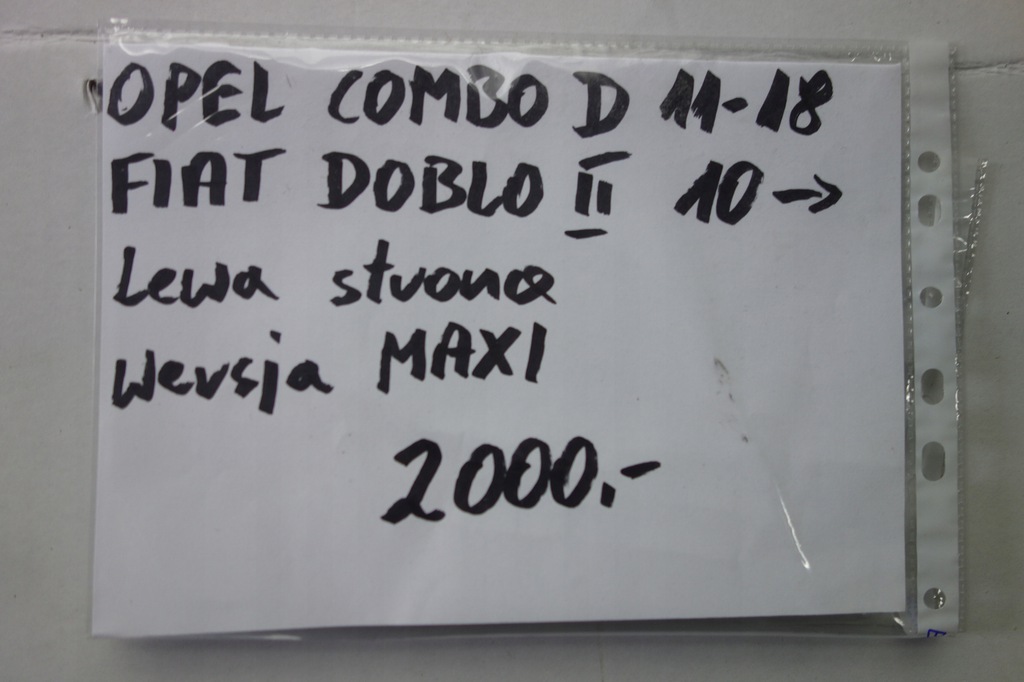 OPEL COMBO D 11-18
FIAT DOBLO II 10 →
Lewa strona
Wersja MAXI
2000.-